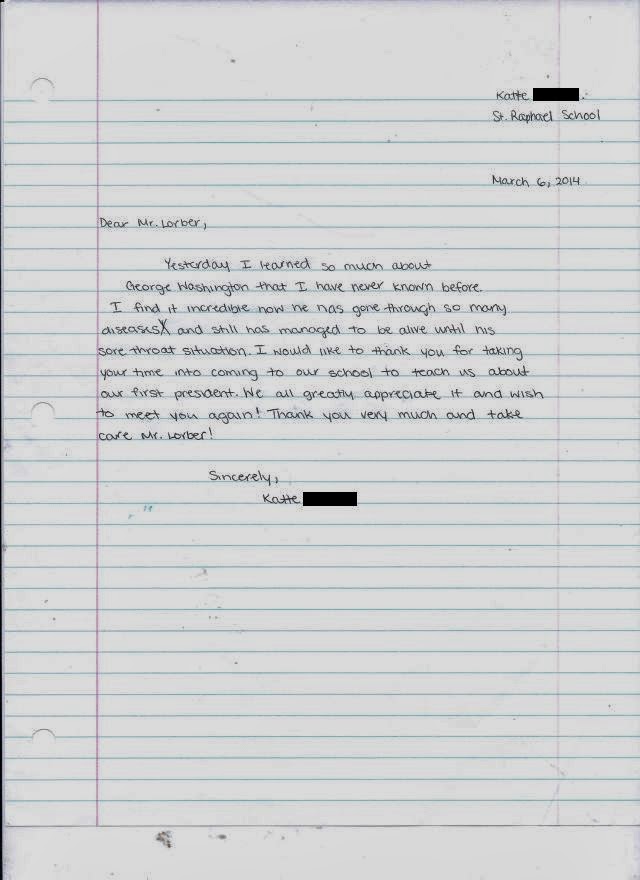 Katte
St. Raphael School
March 6, 2014
Dear Mr. Lorber,
Yesterday I learned so much about
George Washington that I have never known before.
I find it incredible how he has gone through so many
diseases and still has managed to be alive until his
sore throat situation. I would like to thank you for taking
your time into coming to our school to teach us about
our first president. We all greatly appreciate it and wish
to meet you again! Thank you very much and take
care Mr. Lorber!
Sincerely,
Katte